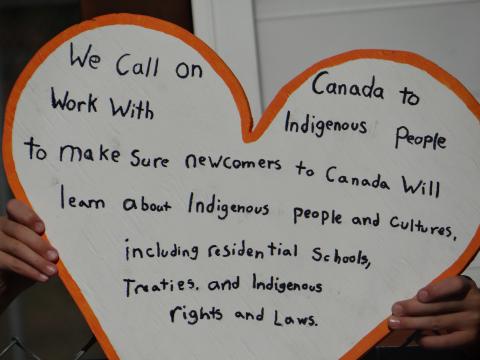 We Call on Canada to
Work With Indigenous People
to make Sure newcomers to Canada Will
learn about Indigenous people and Cultures,
including residential Schools,
Treaties, and Indigenous
rights and Laws.